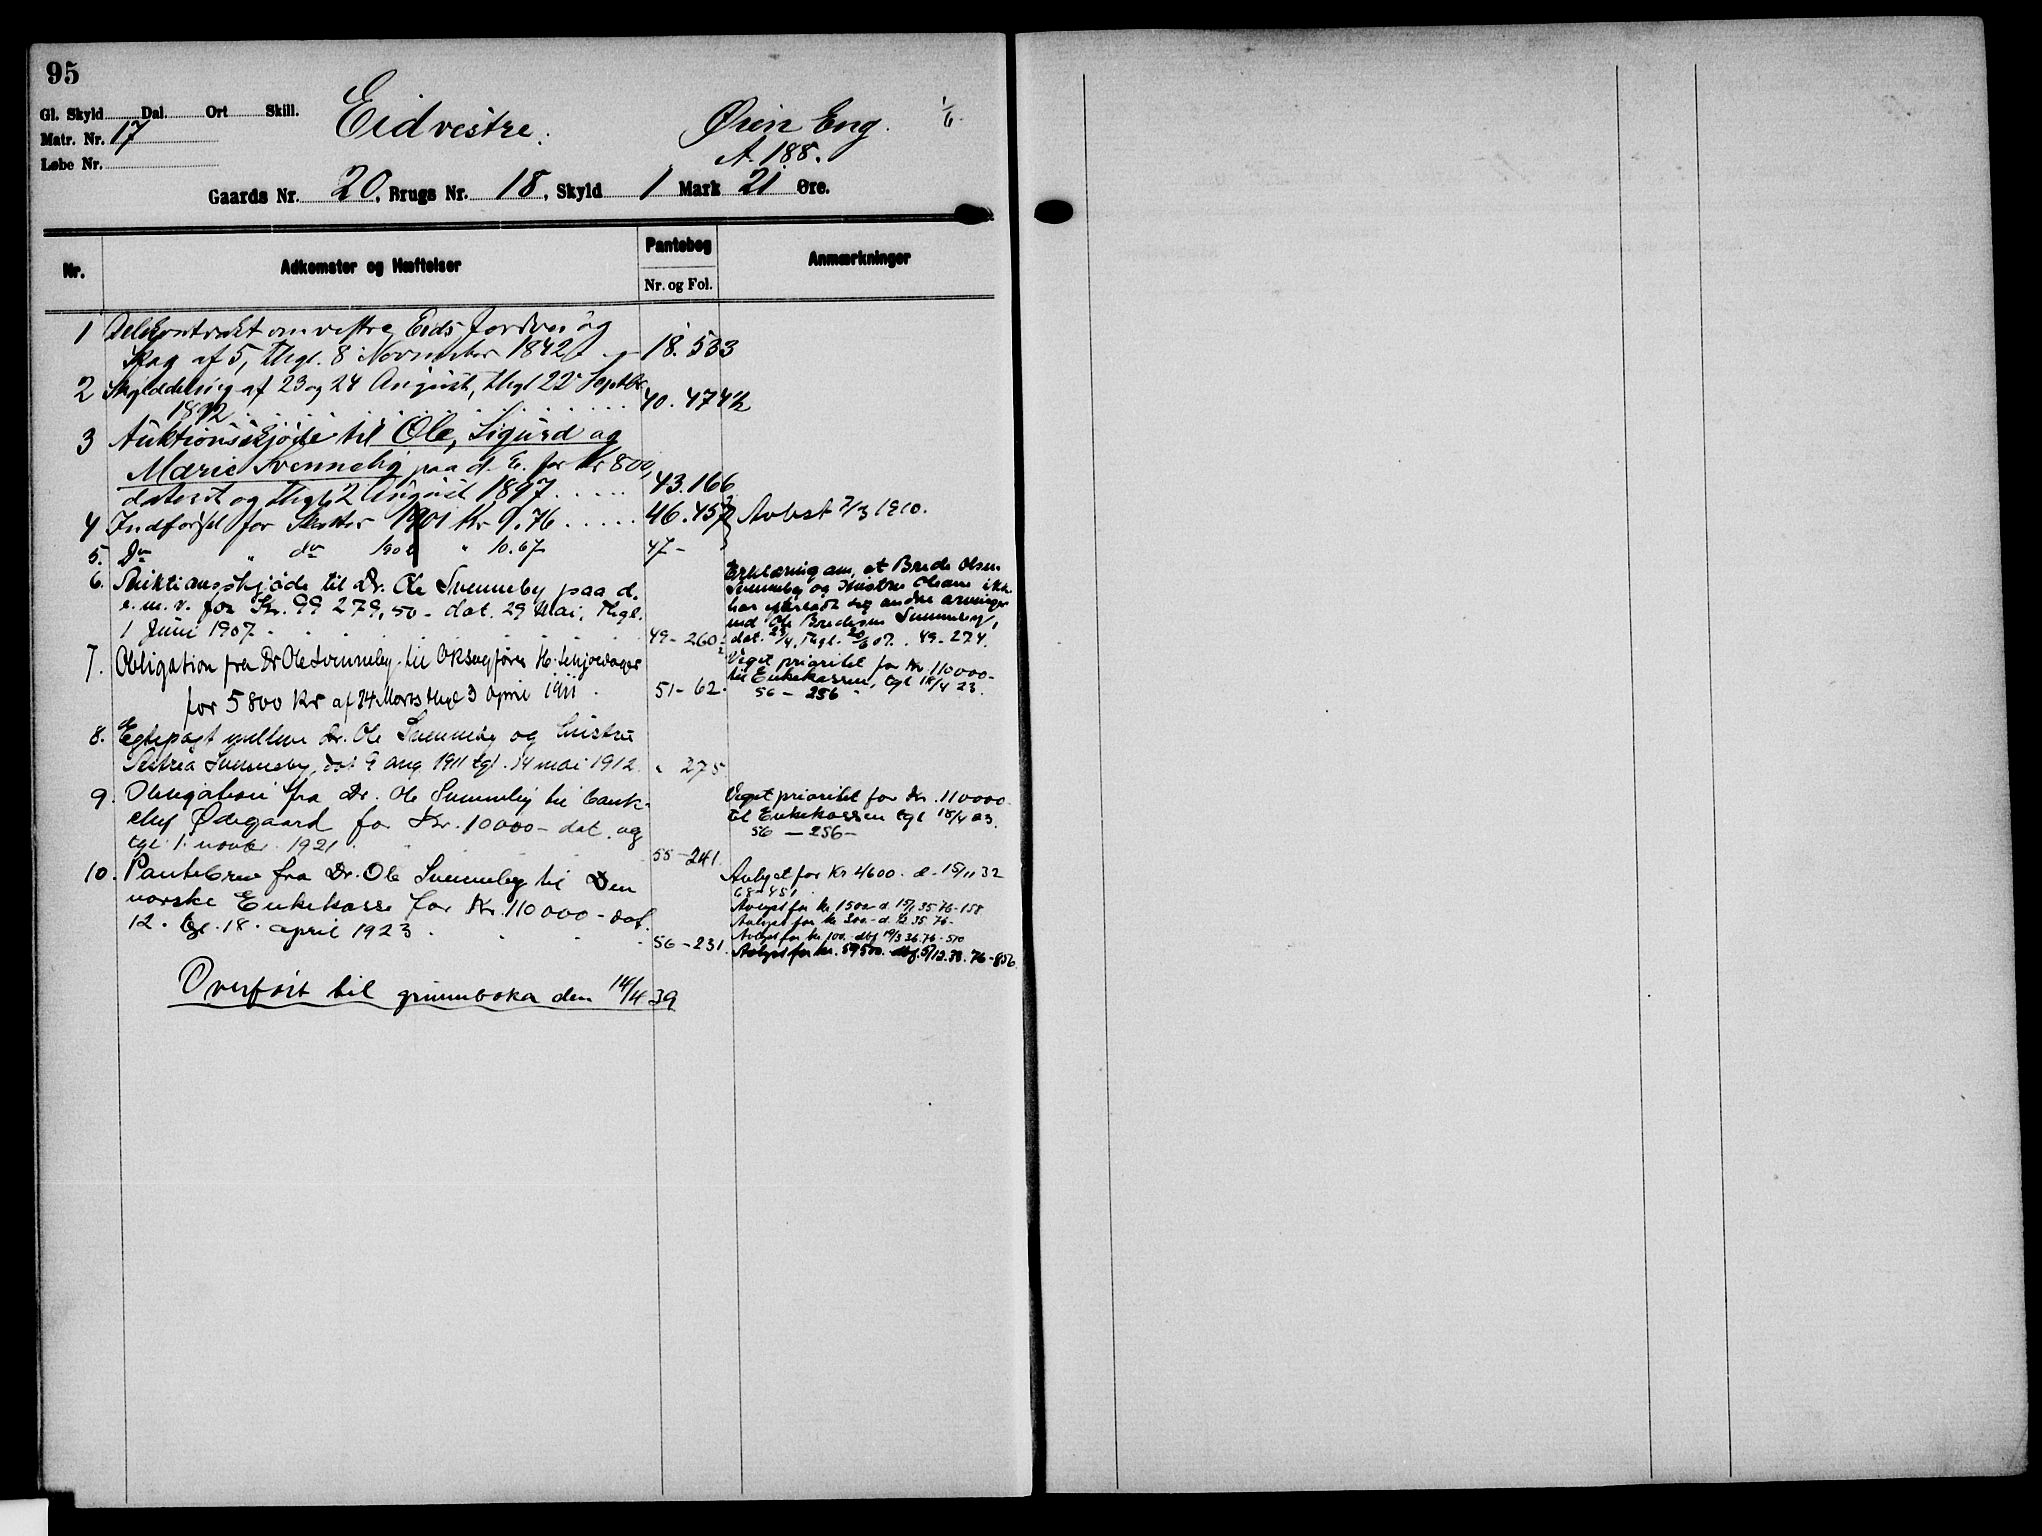 95
Gl. Skyld Dal. Ort Skill.
Matr. Nr. 17
Løbe Nr.
Eid vestre.
Øien Eng. 1/6.
A. 188.
Gaards Nr. 20, Brugs Nr. 18, Skyld 1 Mark 21 Øre.
Nr. Adkomster og Hæftelser Pantebog Anmærkninger
Nr. og Fol.
1 Delekontrakt om vestre Eids Jordvei og
Skog af 5, thgl. 8 November 1842 18. 533
2 Skylddeling af 23 og 24 August, thgl 22 Septbr
1892 40. 474½
3 Auktionsskjøde til Ole, Sigurd og
Marie Svenneby paa d. E. for Kr 800,
dateret og thgl. 2 August 1897 43. 166
4 Indførsel for Skatter 1901 Kr 9.76 46. 457 Avlest 7/3 1910.
5. Do " do 1902 " 10.67 47 -
6. Auktionsskjøde til Dr. Ole Svenneby paa d.
e. m. v. for Kr. 99 279,50 - dat. 29 Mai, Thgl.
1 Juni 1907 49 - 260
Erklæring om, at Brede Olsen
Svenneby og Hustru Oleane ikke
har efterladt sig andre arvinger
end Ole Bredesen Svenneby,
dat. 23/4, Thgl. 20/6 07. 49 - 274.
7. Obligation fra Dr Ole Svenneby til O R Sagfører H. Schjoldager
for 5800 Kr af 24 Marts thgl 3 April 1911 51 - 62.
Veget prioritet for Kr. 110000 -
til Enkekassen, tgl 18/4 23.
56 - 256
8. Egtepagt mellem Dr. Ole Svenneby og hustru
Svenneby, dat 9 aug. 1911 tgl. 14 mai 1912. " 275
9. Obligation fra Dr. Ole Svenneby til bank-
chef Ødegaard for Kr. 10000 - dat. og
tgl. 1. novbr. 1921 55 - 241.
Veget prioritet for Kr. 110000
til Enkekassen tgl 18/4 23.
56 - 256 -
10. Pantebrev fra Dr. Ole Svenneby til Den
norske Enkekasse for Kr. 110 000 - dat.
12. tgl. 18. april 1923. 56 - 231.
Avlyst for Kr 4600. d. 15/11 32
68 - 451
Avlyst for kr. 1500 d. 15/1 35 76 - 158
Avlyst for kr 300 - d. 35 76 -
Avlyst for kr. 100. - dbf 19/3 36. 76 - 510
Avlyst for kr. 59500. dbf. 5/12. 38. 76 - 856.
Overført til grunnboka den 14/4 39